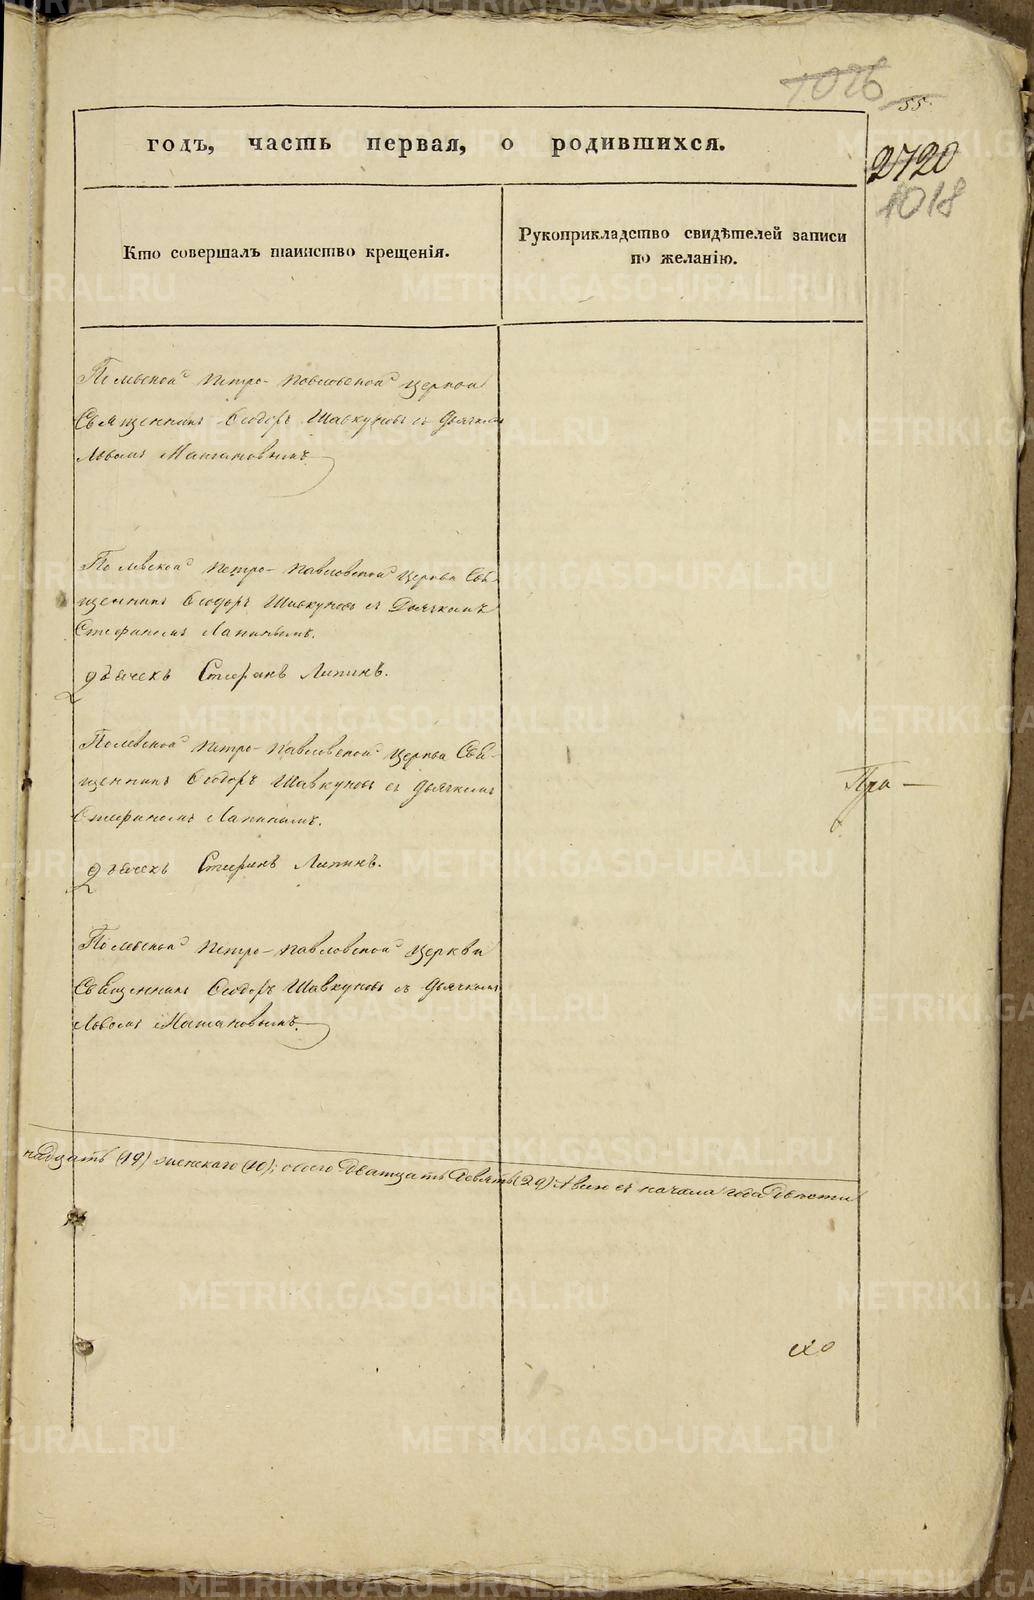 1026
55.
годъ, часть первая, о родившихся.
2720
1018
Кто совершалъ таинство крещенія.
Рукоприкладство свидѣтелей записи
по желанію.
Полевской Петро-Павловской церкви
Священникъ Ѳеодоръ Шавкуновъ съ Дьячкомъ
Львомъ
Полевской Петро-Павловской Церкви Свя-
щенникъ Ѳеодоръ Шавкуновъ съ Дьячкомъ
Стефаномъ Лапинымъ.
Дьячекъ Стефанъ Лапинъ.
Полевской Петро-Павловской Церкви Свя-
щенникъ Ѳеодоръ Шавкуновъ съ Дьячкомъ
Стефаномъ Лапинымъ.
Пра-
Дьячекъ Стефанъ Лапинъ.
Полевской Петро-Павловской Церкви
Священникъ Ѳеодоръ Шавкуновъ съ Дьячкомъ
Львомъ
надцать (19) женскаго (10); всего двадцать девять (29) А всего съ начала года
METRIKI.GASO-URAL.RU